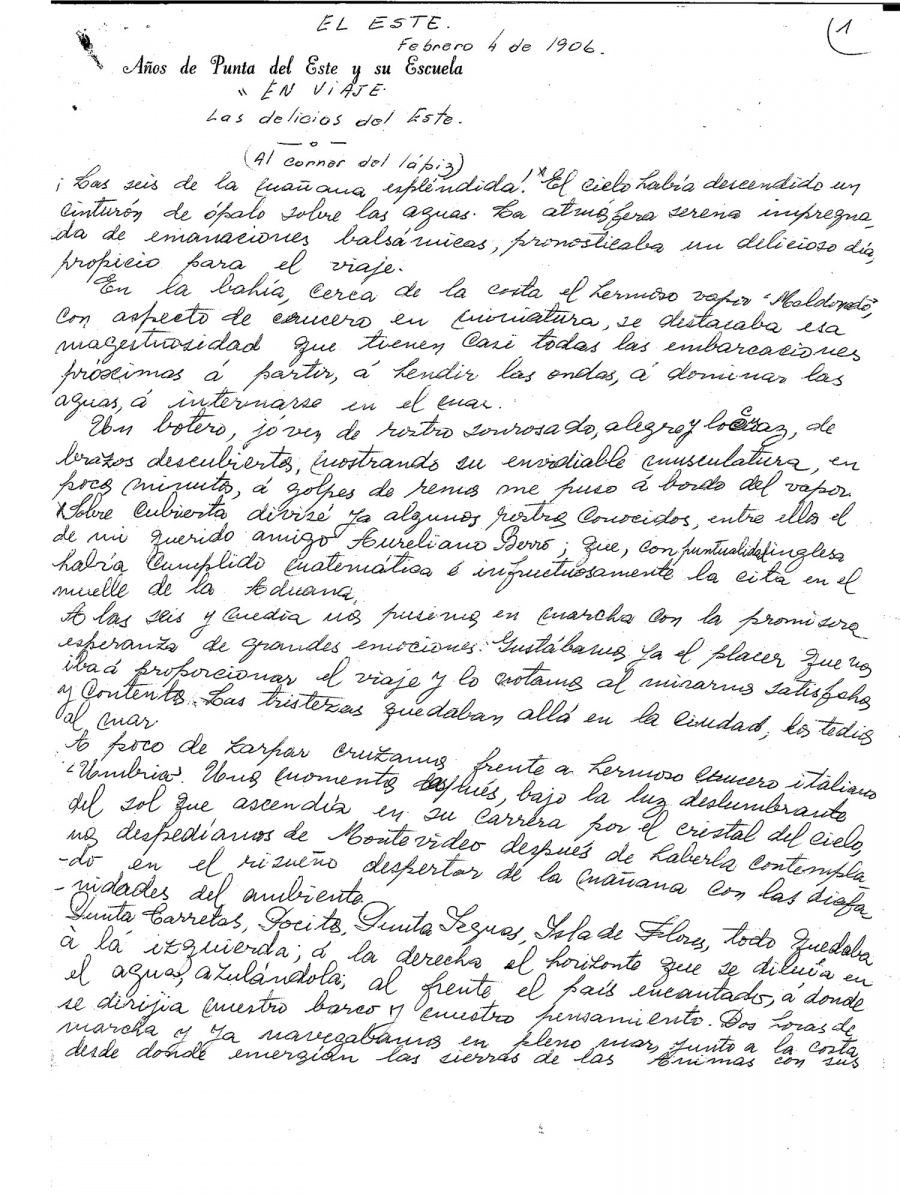 EL ESTE.
1
Febrero 4 de 1906.
Años de Punta del Este y su Escuela
" EN VIAJE.
Las delicias del Este.
— o —
(Al correr del lápiz)
¡Las seis de la mañana espléndida! El cielo había descendido un
cinturón de ópalo sobre las aguas. La atmósfera serena impregna-
da de emanaciones balsámicas, pronosticaba un delicioso día,
propicio para el viaje.
En la bahía, cerca de la costa el hermoso vapor "Maldonado",
con aspecto de crucero en miniatura, se destacaba esa
magestuosidad que tienen casi todas las embarcaciones
próximas á partir, á hendir las ondas, á dominar las
aguas, á internarse en el mar.
Un botero, joven de rostro sonrosado, alegre y locuaz, de
brazos descubiertos, mostrando su envidiable musculatura, en
pocos minutos, á golpes de remos me puso á bordo del vapor.
Sobre cubierta divisé ya algunos rostros conocidos, entre ellos el
de mi querido amigo Aureliano Berro; que, con puntualidad inglesa
había cumplido matemática é infructuosamente la cita en el
muelle de la Aduana.
A las seis y media nos pusimos en marcha con la promisora
esperanza de grandes emociones. Gustábamos ya el placer que nos
iba á proporcionar el viaje y lo notamos al mirarnos satisfechos
y contentos. Las tristezas quedaban allá en la ciudad, los tedios
al mar
A poco de zarpar cruzamos frente a hermoso crucero italiano
"Umbria". Unos momentos después, bajo la luz deslumbrante
del sol que ascendía en su carrera por el cristal del cielo,
nos despedíamos de Montevideo después de haberla contempla-
-do en el risueño despertar de la mañana con las diafa
-nidades del ambiente.
Punta Carretas, Pocitos, Punta Yeguas, Isla de Flores, todo quedaba
á la izquierda; á la derecha el horizonte que se diluía en
el agua, azulándola; al frente el país encantado, á donde
se dirijia nuestro barco y nuestro pensamiento. Dos horas de
marcha y ya navegabamos en pleno mar, junto a la costa
desde donde emergían las sierras de las Animas con sus